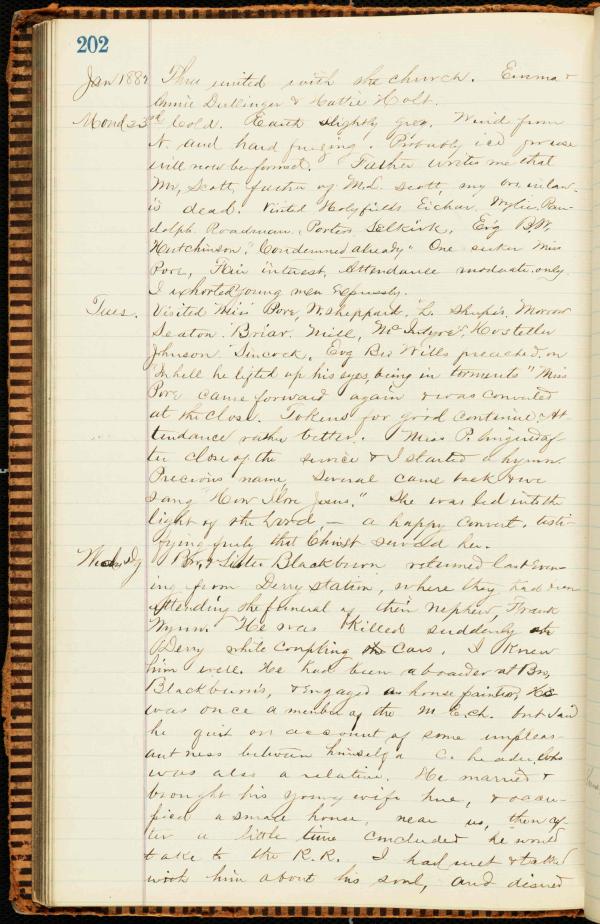 202
Jan 1882 Three united with the church. Emma &
Annie Dullinger & Hattie Holt.
Mond 23d Cold. Earth slightly grey. Wind from
N. and hard freezing. Probably ice for use
will now be formed. Father writes me that
Mr, Scott, father of M.L. Scott, my bro inlaw.
is dead. Visited Holyfields Eichar, Wylie, Ran-
dolph Roadman, Porters, Selkirk, Evg B.W.
Hutchinson, "Condemned already" One seeker Miss
Pore, Fair interest, Attendance moderate only.
I exhorted young men expressly.
Tues. Visited Miss Pore, W. Sheppard, L. Morrow
Seaton Briar Neill, McIntyre, Hostetler
Johnson Simcock, Evg Bro Wills preached on
"In hell he lifted up his eyes, being in torments" Miss
Pore came forward again & was converted
at the close. Tokens for good continue, At
tendance rather better. Miss P. lingered af-
ter close of the service & I started a hymn.
Precious name, Several came back & we
sang "How I love Jesus." She was led into the
light of the Word — a happy convert, testi-
fying freely that Christ saved her.
Wednesdy Bro, & Sister Blackburn returned last even-
ing from Derry station, where they had been
attending the funeral of their nephew, Frank
Wynn. He was killed suddenly at
Derry while coupling cars. I knew
him well. He had been a boarder at Bro,
Blackburn's, & engaged as house painter, He
was once a member of the M. E. ch. but said
he quit on account of some unpleas-
ant ness between himself & a C. leader, who
was also a relative. He married &
brought his young wife here, & occu-
pied a small house, near us, then af-
ter a little time concluded he would
take to the R.R. I had met & talked
with him about his soul, and desired